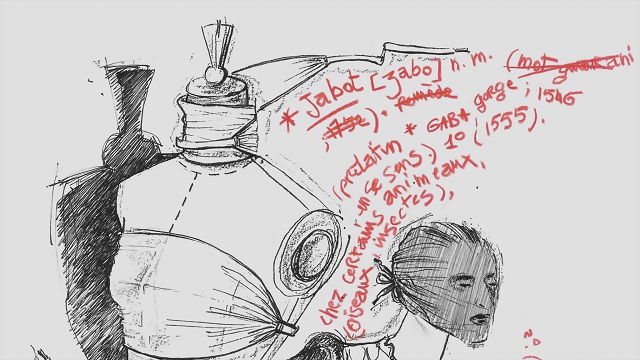 * Jabot [ʒabo] n. m.
). * GABA gorge ; 1546
(prélatin
in ce sens.) 1º (1555).
chez certains animaux,
(oiseaux insectes),